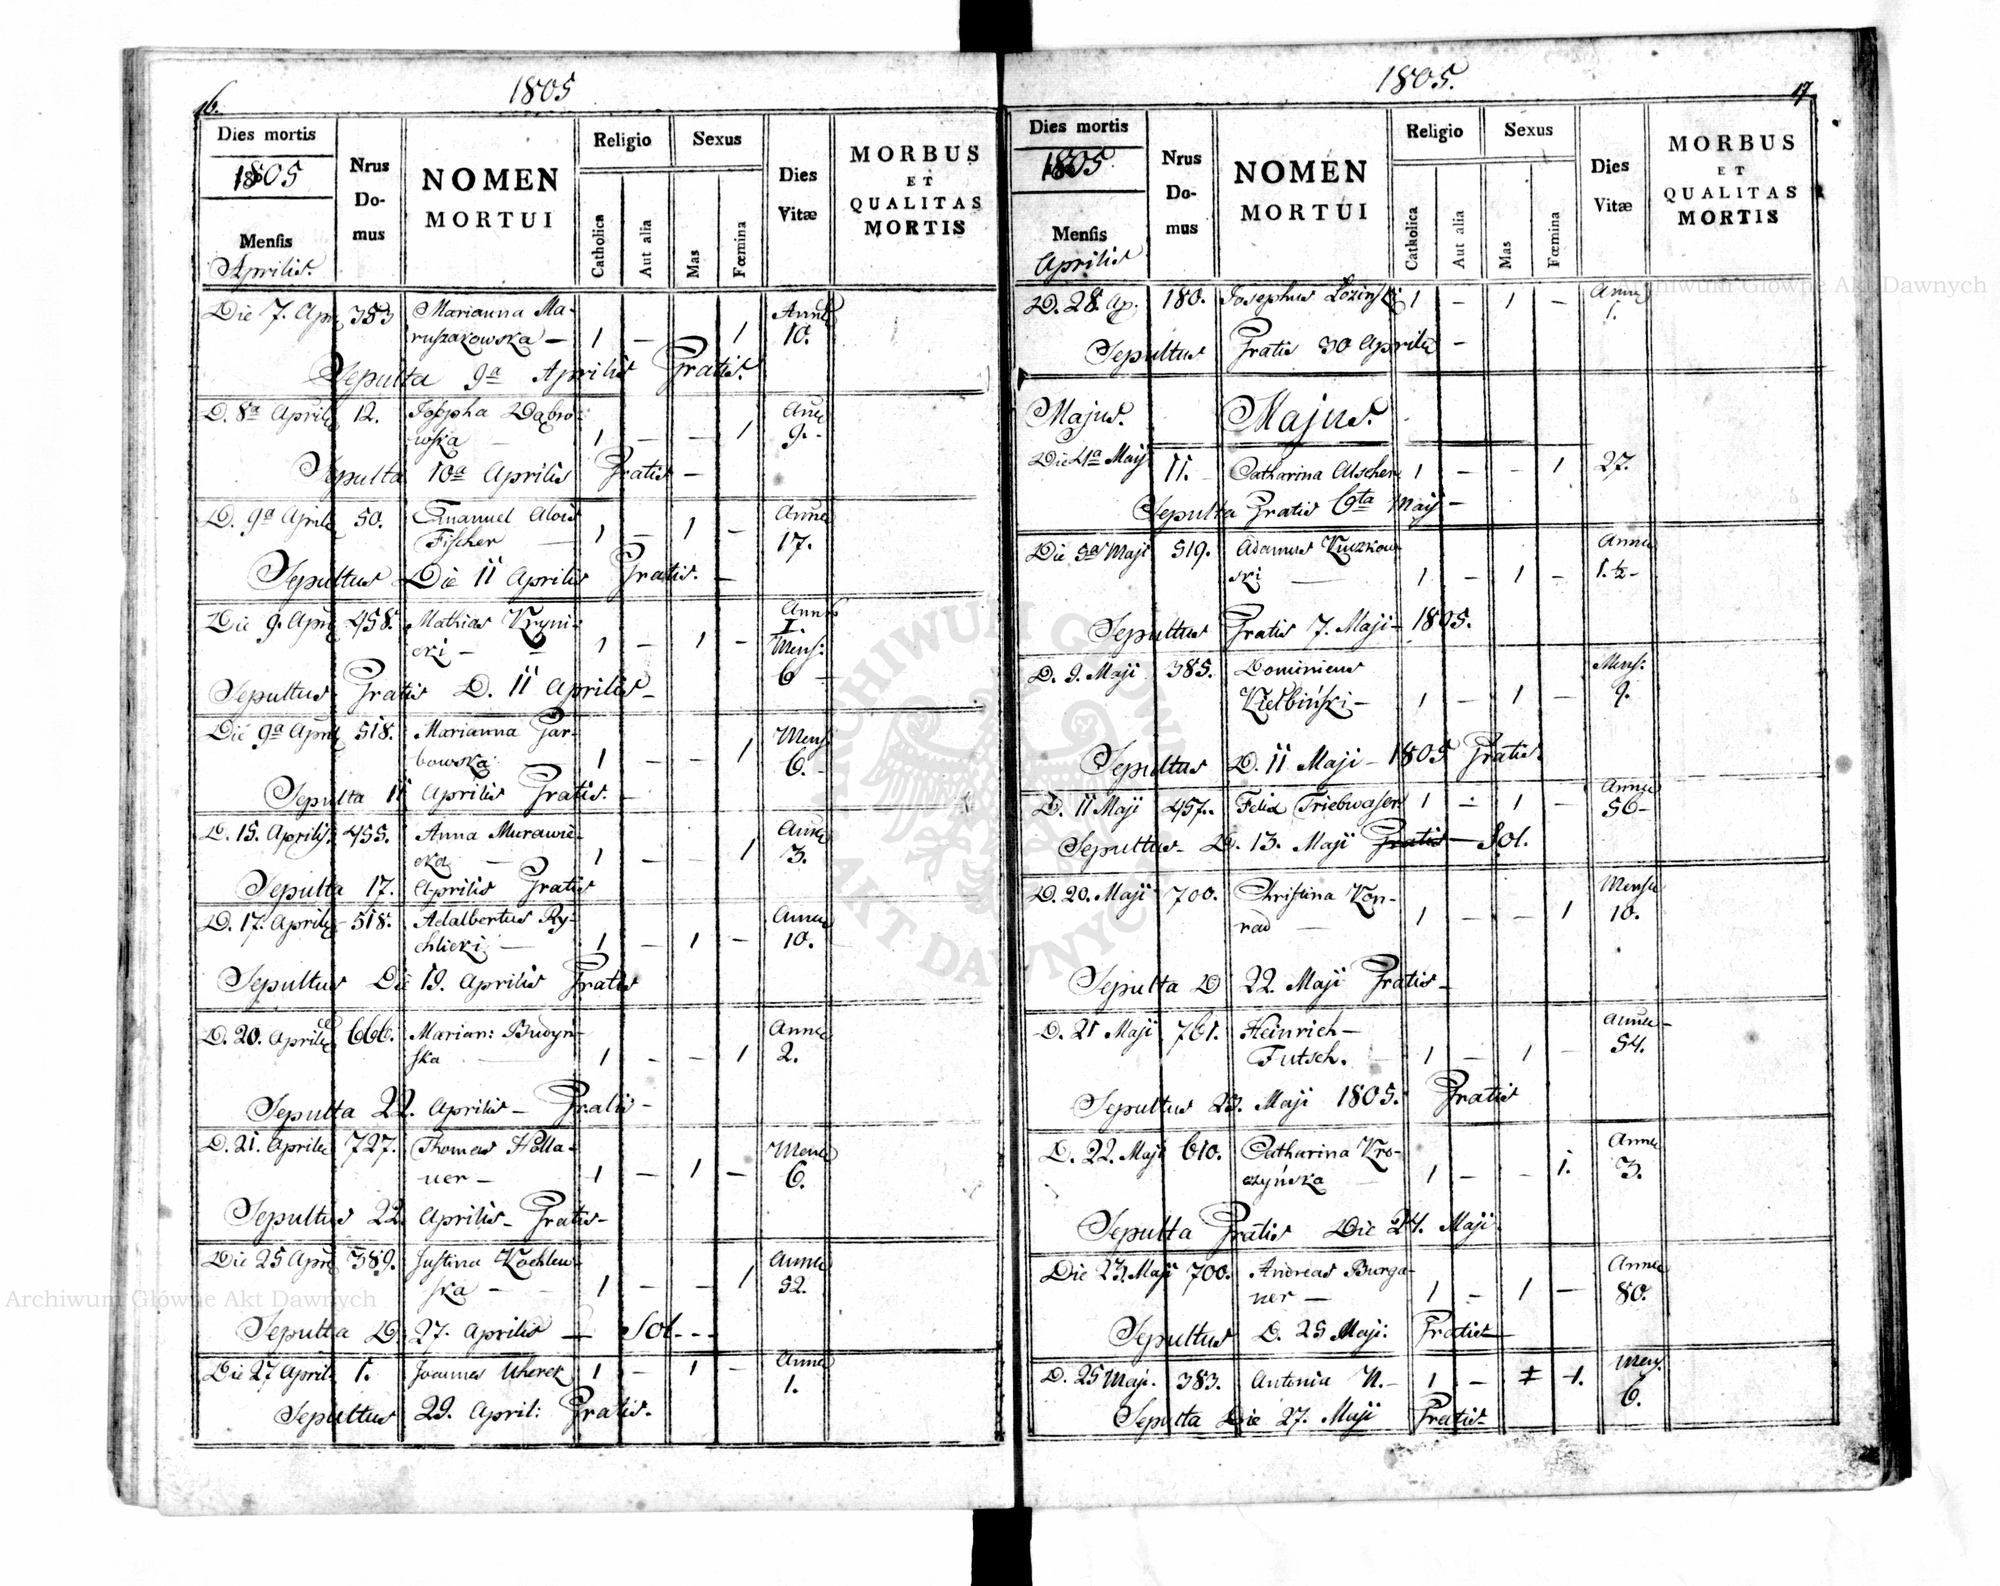 16.
1805
Dies mortis
1805
Menſis
Aprilis.
Nrus
Do-
mus
NOMEN
MORTUI
Religio
Catholica
Aut alia
Sexus
Mas
Fœmina
Dies
Vitæ
MORBUS
ET
QUALITAS
MORTIS
Die 7. Apri 383 Marianna Ma- Annor
ruszakowska — 1 — 1 10.
Sepulta 9a Aprilis Gratis.
D. 8a Aprilis 12. Josepha Dąbro-
wska 1 — — 1 9.-
Sepulta 10a Aprilis Gratis —
D. 9a Aprilis 50. Emanuel Alois
Fischer 1 — 1 — 17.
Sepultus Die 11 Aprilis Gratis. —
Die 9. Apri 458. Mathias Kryni-
cki — 1 — 1 — I. Mens: 6 —
Sepultus Gratis D. 11 Aprilis —
Die 9a Apri 518. Marianna Gar- Mens
bowska 1 — — 1 6.-
Sepulta 11 Aprilis Gratis. —
D. 15. Aprilis. 455. Anna Murawic-
cka — 1 — — 1 3.
Sepulta 17. Aprilis Gratis
D. 17. Aprilis 518. Adalbertus Ry-
chlicki — 1 — 1 — 10.
Sepultus Die 19. Aprilis Gratis
D. 20. Aprilis 666. Marian: Budyn-
ska 1 — — 1 2.
Sepulta 22. Aprilis — Gratis —
D. 21. Aprilis 727. Thomas Holla-
uer — 1 — 1 — 6.
Sepultus 22. Aprilis — Gratis —
Die 25 Apri 389. Justina Kochlew-
ska — 1 — — 1 52.
Sepulta D. 27. Aprilis — Sol. - -
Die 27 April. 1. Joannes Uherek 1 — 1 — 1.
Sepultus 29. April: Gratis.
1805.
17
Dies mortis
1805
Menſis
Aprilis
Nrus
Do-
mus
NOMEN
MORTUI
Religio
Catholica
Aut alia
Sexus
Mas
Fœmina
Dies
Vitæ
MORBUS
ET
QUALITAS
MORTIS
D. 28. Ap. 180. Josephus Łoziński 1 — 1 — 1.
Sepultus Gratis 30 Aprilis —
Majus. Majus.
Die 4a Maij 11. Catharina Alscher 1 — — 1 27.
Sepulta Gratis 6ta Maij —
Die 5a Maji 519. Adamus Kuczkow-
ski — 1 — 1 — 1.½-
Sepultus Gratis 7. Maji — 1805.
D. 9. Maji 385. Dominicus Mens:
Kiełbiński — 1 — 1 — 9.
Sepultus D. 11 Maji — 1805 Gratis
D. 11 Maji 457. Felix Triebwaser 1 — 1 — 56 —
Sepultus — D. 13. Maji Gratis — Sol.
D. 20. Maji 700. Christina Kon-
rad — 1 — — 1 10.
Sepulta D 22. Maji Gratis —
D. 21 Maji 761. Heinrich —
Futsch. 1 — 1 — 54.
Sepultus 23. Maji 1805. Gratis
D. 22. Maji 610. Catharina Kro-
czyńska 1 — — 1. 3.
Sepulta Gratis Die 24. Maji.
Die 23. Maji 700. Andreas Burga-
ner — 1 — 1 — 80.
Sepultus D. 25 Maji: Gratis —
D. 25 Maji. 383. Antonia N. — 1 — 1.
Sepulta Die 27. Maji Gratis 6.
Archiwum Główne Akt Dawnych
Archiwum Główne Akt Dawnych
ARCHIWUM GŁÓWNE AKT DAWNYCH